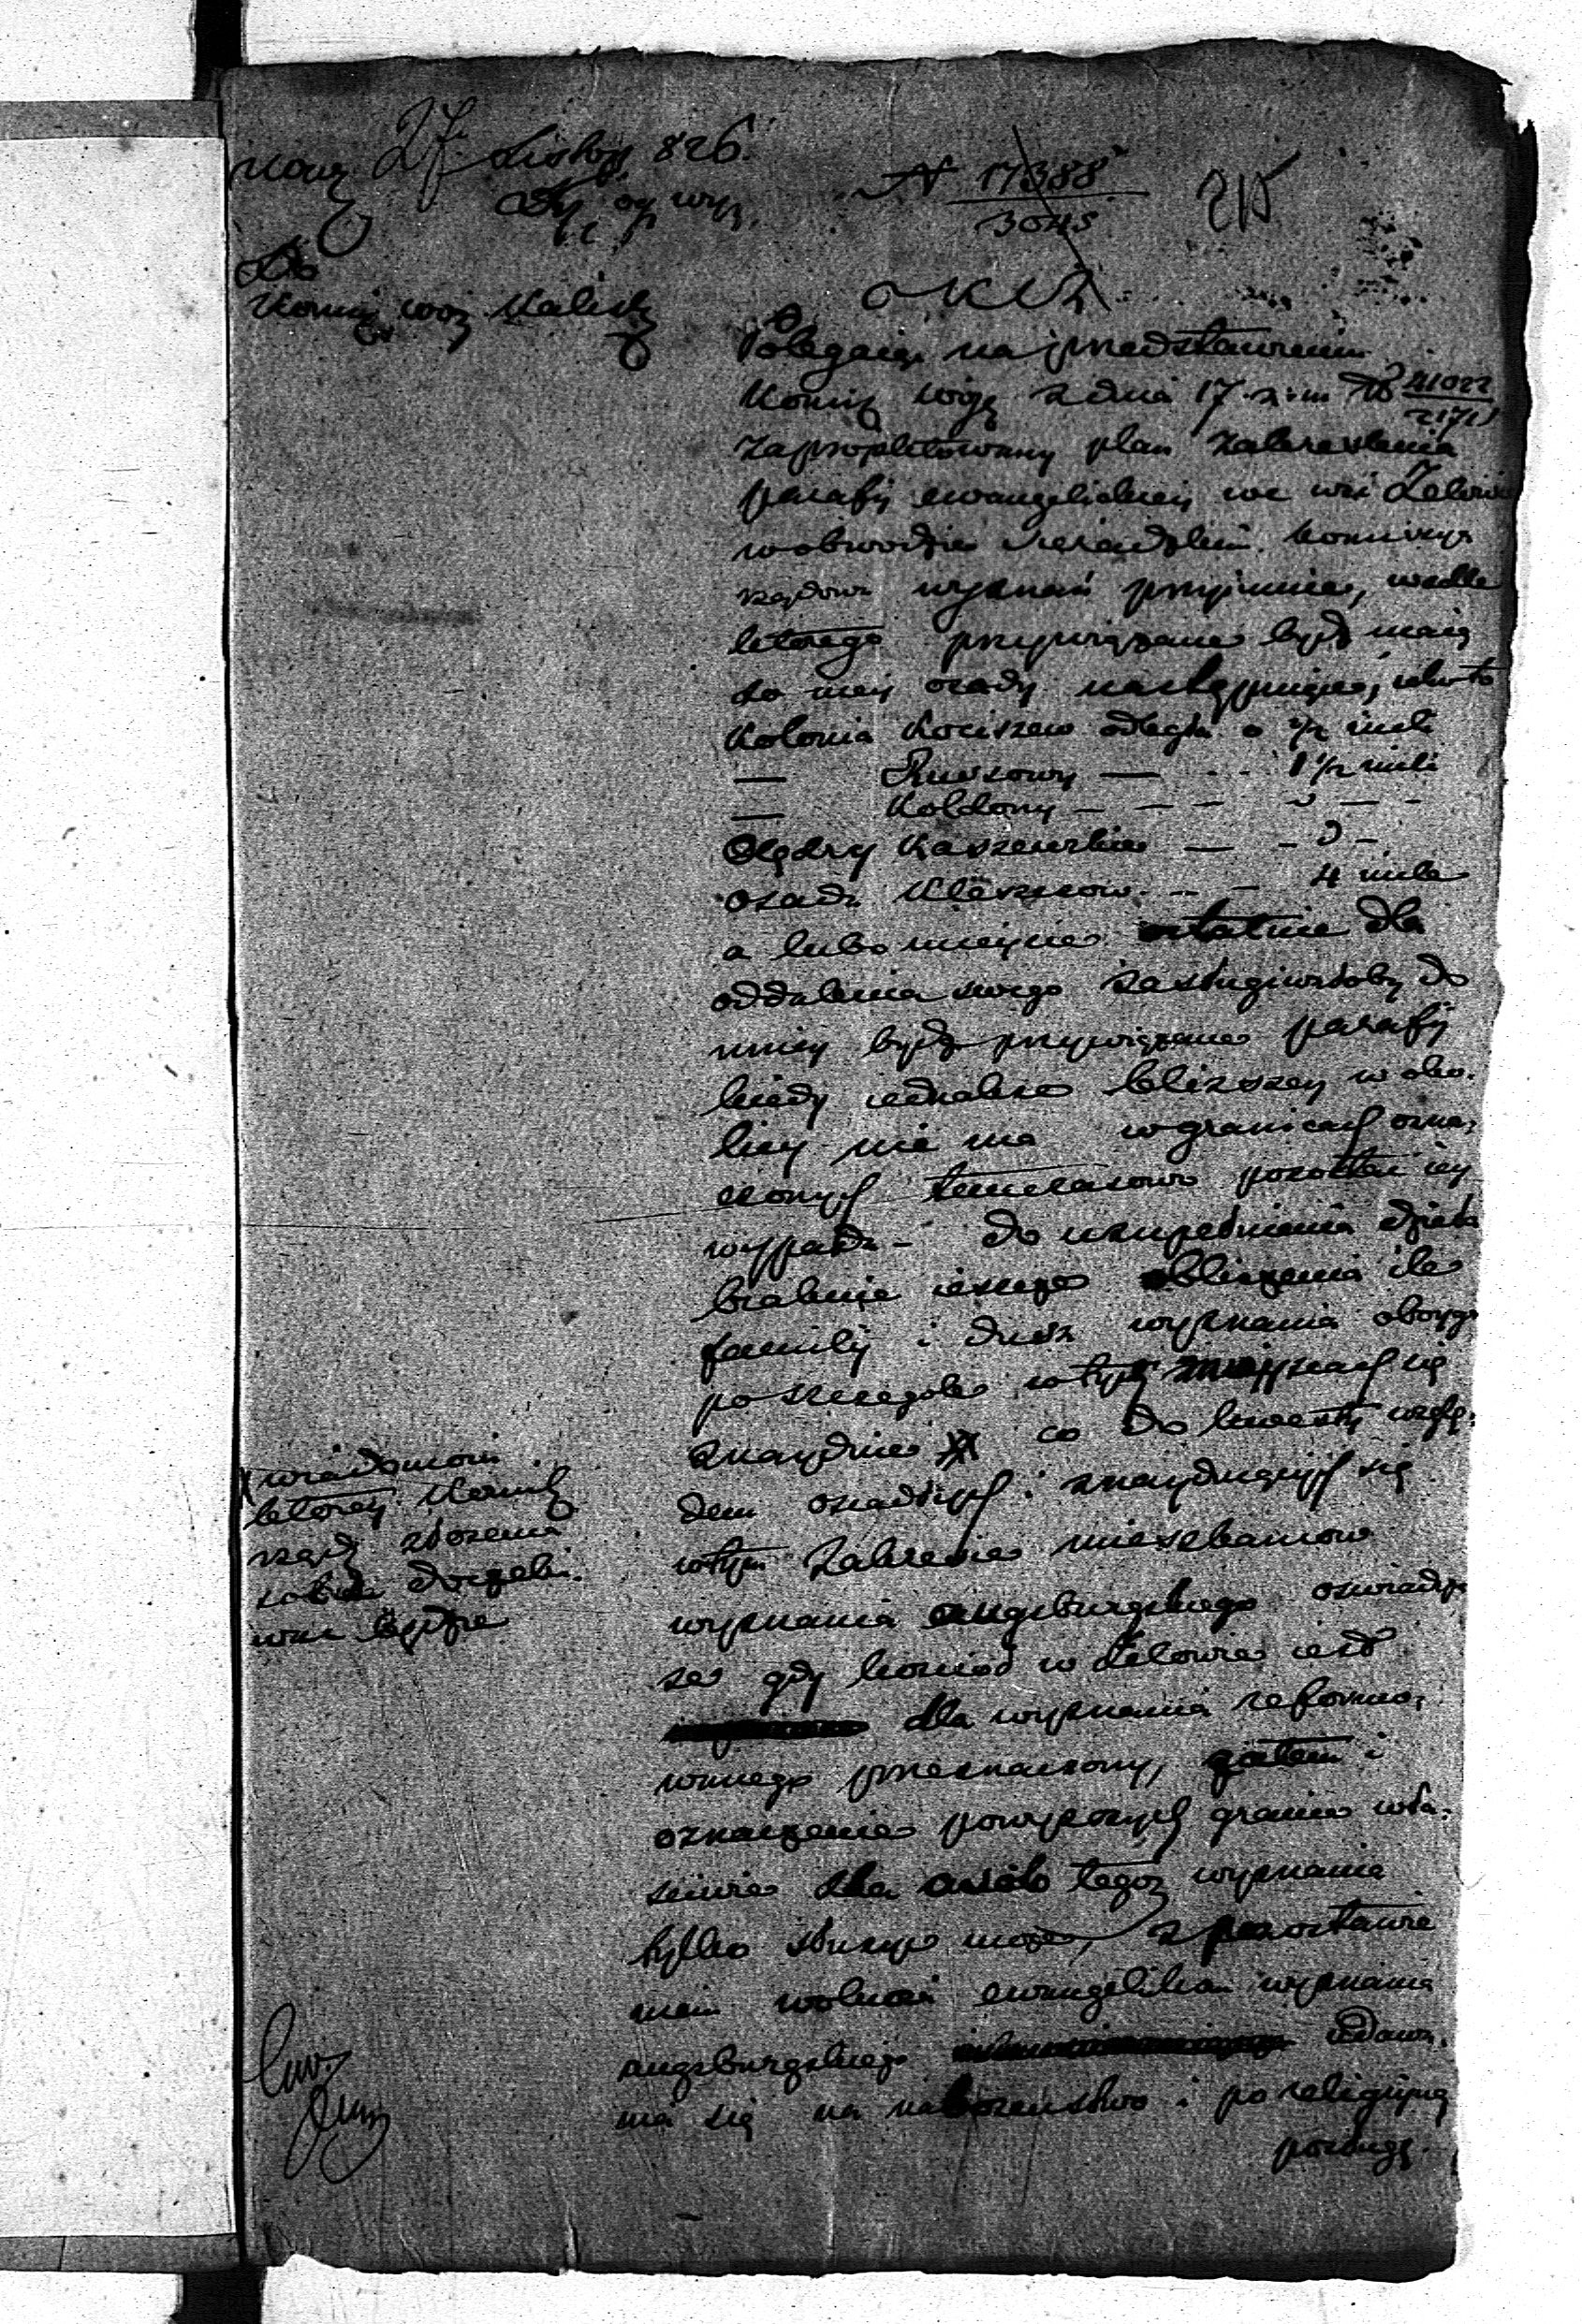 27 Listop 826.
N 17388
3045
215
Do
Komis woj Kalisk
Polegaiąc na przedstawieniu
Komis woje z dnia 17 z. m No 41022
zaproiektowany plan zakreslenia
parafij ewangelickiej we wsi Zelowie
w obwodzie Sieradzkim. Komissya
rządowa wyznań przyjmuie, wedle
ktorego przywiązane bydź maią
do niej osady następuiące, iako to
Kolonia Kociszew odległa o 1/2 mili
— Pussowy — 1 1/2 mili
— Koldony — — — — —
Olędry Kaszewskie — —
osada Kleszczow — — 4 mile
a lubo mieysce ostatnie dla
oddalenia swego zasługiwałoby do
inney bydz przywiązane parafij
kiedy iednakze bliższey w oko-
licy nie ma w granicach ozna-
czonych tymczasowo pozostać iey
wypada — do uzupełnienia dzieła
brakuie ieszcze obliczenia ile
familij i dusz wyznania oboyga
poszczegole w tych mieyscach się
znayduie X co do kwestij wzglę-
dem osiadłych i znayduiących się
w tym zakresie mieszkancow
wyznania augsburgskiego oswiadcza
ze gdy kosciół w Zelowie iest
dla wyznania reformo-
wanego przeznaczony, zatem i
oznaczenie powyzszych granic wła-
sciwie dla osób tegoz wyznania
tylko służyć może, z pozostawie
niem wolnosci ewangelikom wyznania
augsburgskiego udawa-
nia się na nabozenstwo i po religijną
posługę.
X wiadomosci
ktorey Komis
rządz złożenia
sobie oczeki-
wac będzie